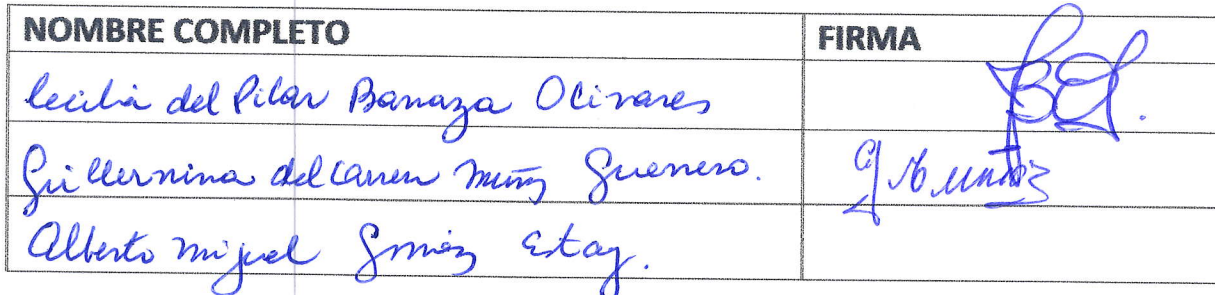 NOMBRE COMPLETO FIRMA
Cecilia del Pilar Barraza Olivares
Guillermina del Carmen Muñoz Guerrero. G Muñoz
Alberto Miguel Gómez Estay.